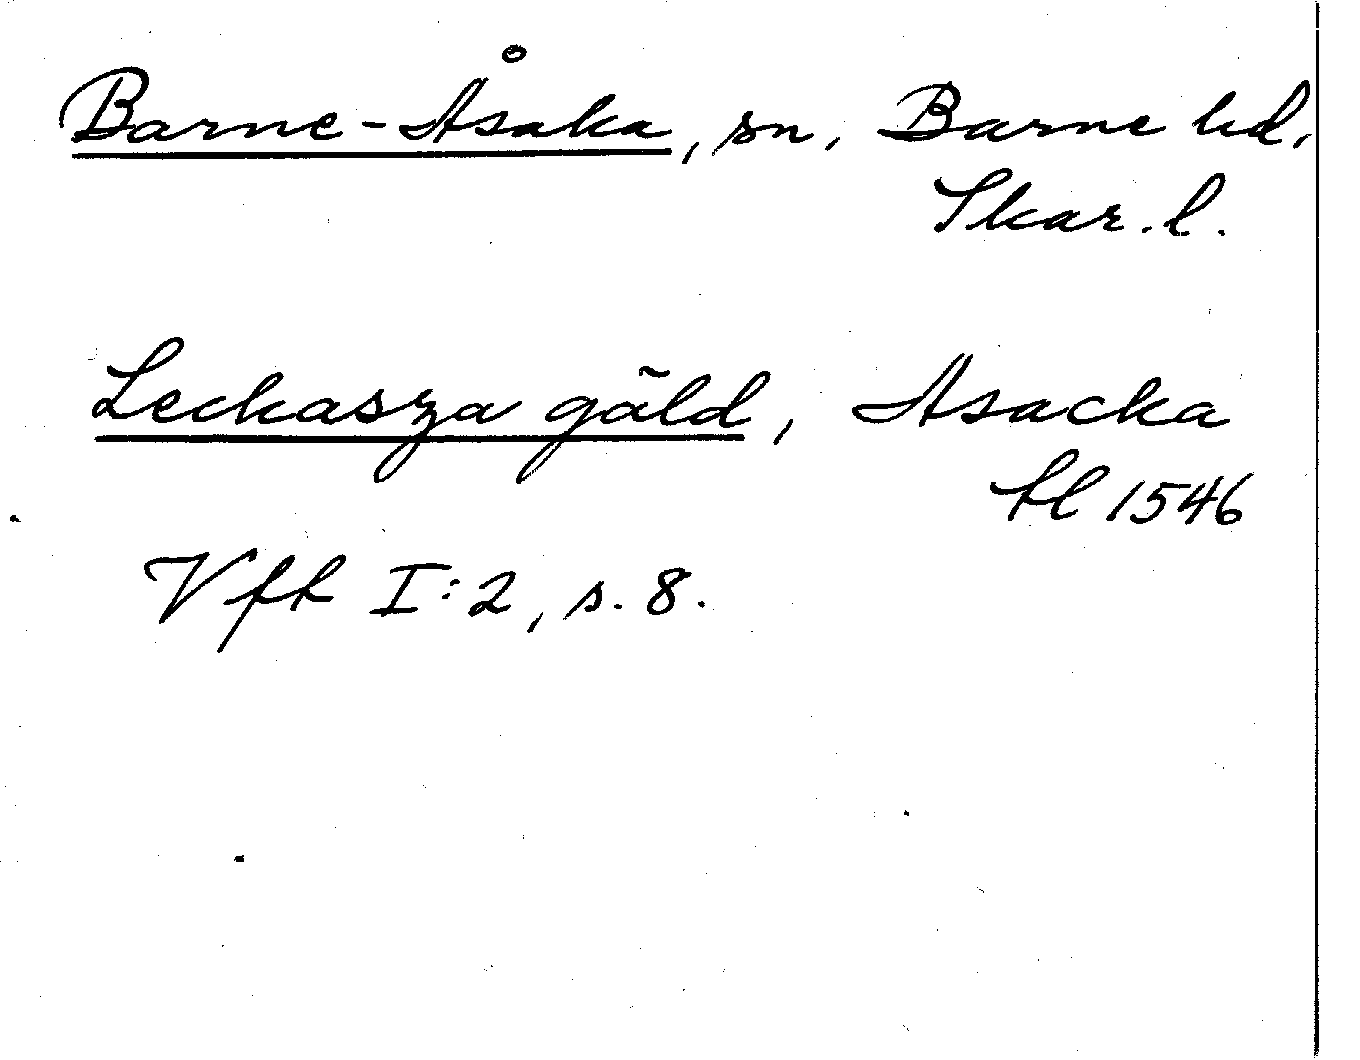 Barne-Åsaka, sn, Barne hd,
Skar. l.
Leckasza gäld, Asacka
kl 1546
Vfk I:2, s. 8.